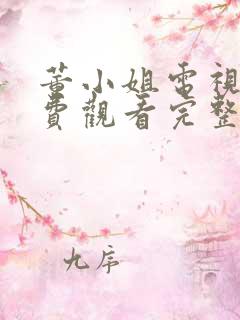 董小姐電視
費觀看完整
九序